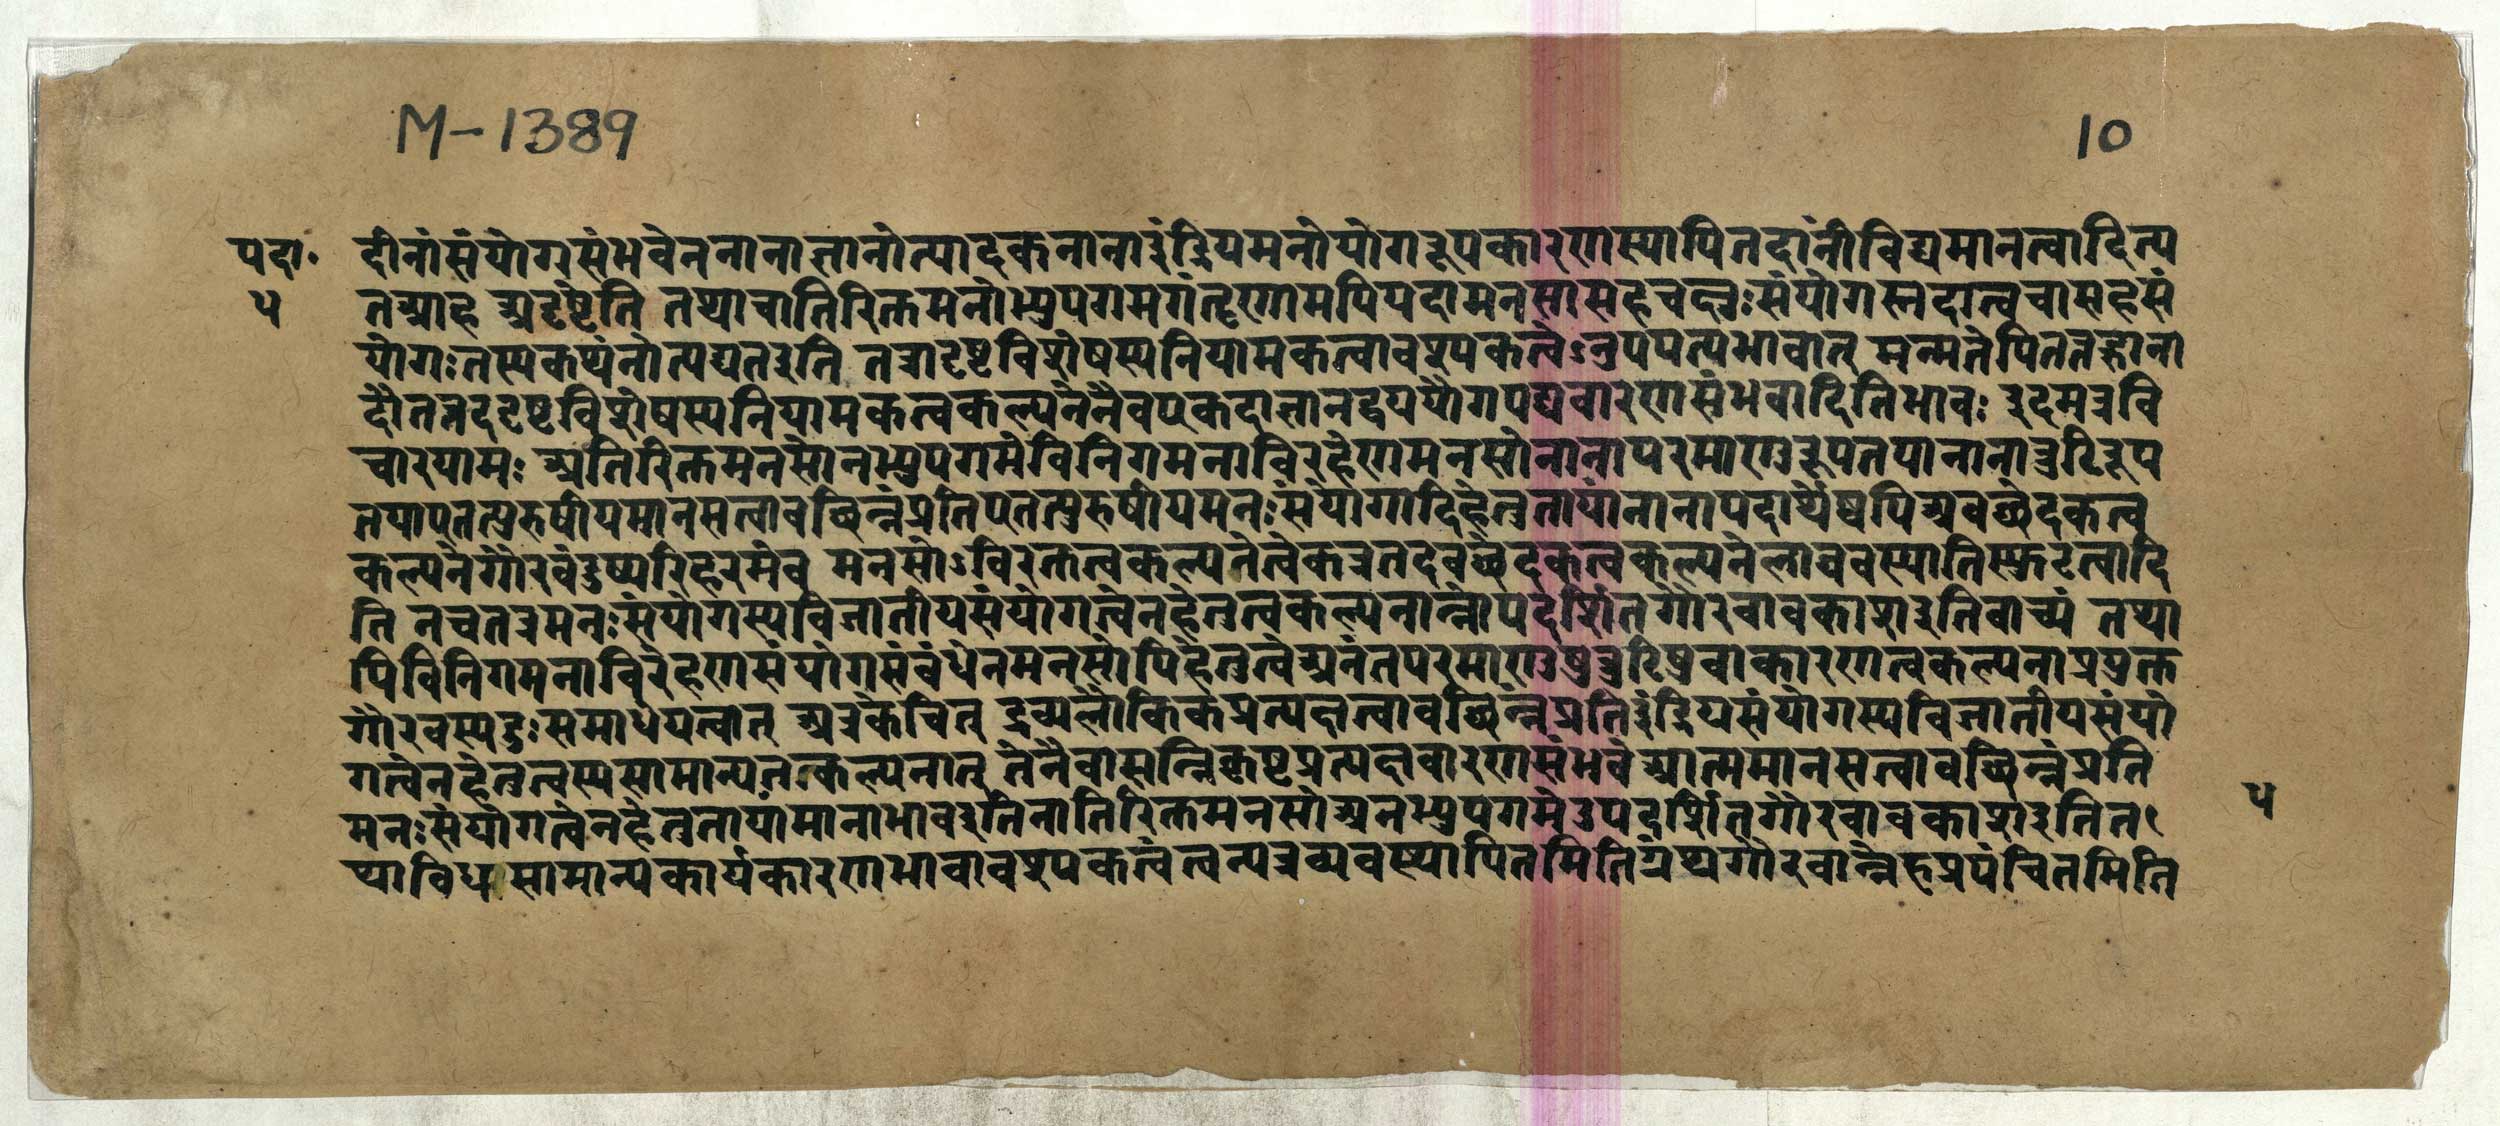 M-1389
10
पदा॰ दीनांसंयोगसंभवेननानाज्ञानोत्पादकनानाइंद्रियमनोयोगरूपकारणस्यापितदानींविद्यमानत्वादित्य
५ तआह अदृष्टेति तथाचातिरिक्तमनोभ्युपगमगंतॄणामपियदामनसासहचक्षुःसंयोगस्तदात्वचासहसं
योगःतस्यकथंनोत्पद्यतइति तत्रादृष्टविशेषस्यनियामकत्वावश्यकत्वेऽनुपपत्यभावात् मन्मतेपितत्तज्ज्ञाना
दौतत्तददृष्टविशेषस्यनियामकत्वकल्पनेनैवएकदाज्ञानद्वययौगपद्यवारणसंभवादितिभावः इदमत्रवि
चारयामः अतिरिक्तमनसोनभ्युपगमेविनिगमनाविरहेणमनसोनानापरमाणुरूपतयानानात्रुटिरूप
तयाएतत्पुरुषीयमानसत्वावच्छिन्नंप्रतिएतत्पुरुषीयमनःसंयोगादिहेतुतायांनानापदार्थेष्वपिअवच्छेदकत्व
कल्पनेगौरवंदुष्परिहरमेव मनसोऽविरक्तत्वकल्पतेत्वेकत्रतदवच्छेदकत्वकल्पनेलाघवस्यातिस्फुटत्वादि
ति नचतत्रमनःसंयोगस्यविजातीयसंयोगत्वेनहेतुत्वकल्पनान्नोपदर्शितगौरवावकाशइतिवाच्यं तथा
पिविनिगमनाविरहेणसंयोगसंबंधेनमनसोपिहेतुत्वेअनंतपरमाणुषुत्रुटिषुवाकारणत्वकल्पनाप्रयुक्त
गौरवस्यदुःसमाधेयत्वात् अत्रकेचित् द्रव्यलौकिकप्रत्यक्षत्वावच्छिंन्नंप्रतिइंद्रियसंयोगस्यविजातीयसंयो
गत्वेनहेतुत्वस्यसामान्यतःकल्पनात् तेनैवासन्निकृष्टप्रत्यक्षवारणसंभवेआत्ममानसत्वावच्छिन्नंप्रति
मनःसंयोगत्वेनहेतुतायांमानाभावइतिनातिरिक्तमनसोअनभ्युपगमेउपदर्शितगौरवावकाशइतित
थाविधसामान्यकार्यकारणभावावश्यकत्वंत्वन्यत्रव्यवस्थापितमितिग्रंथगौरवान्नेहप्रपंचितमिति
५